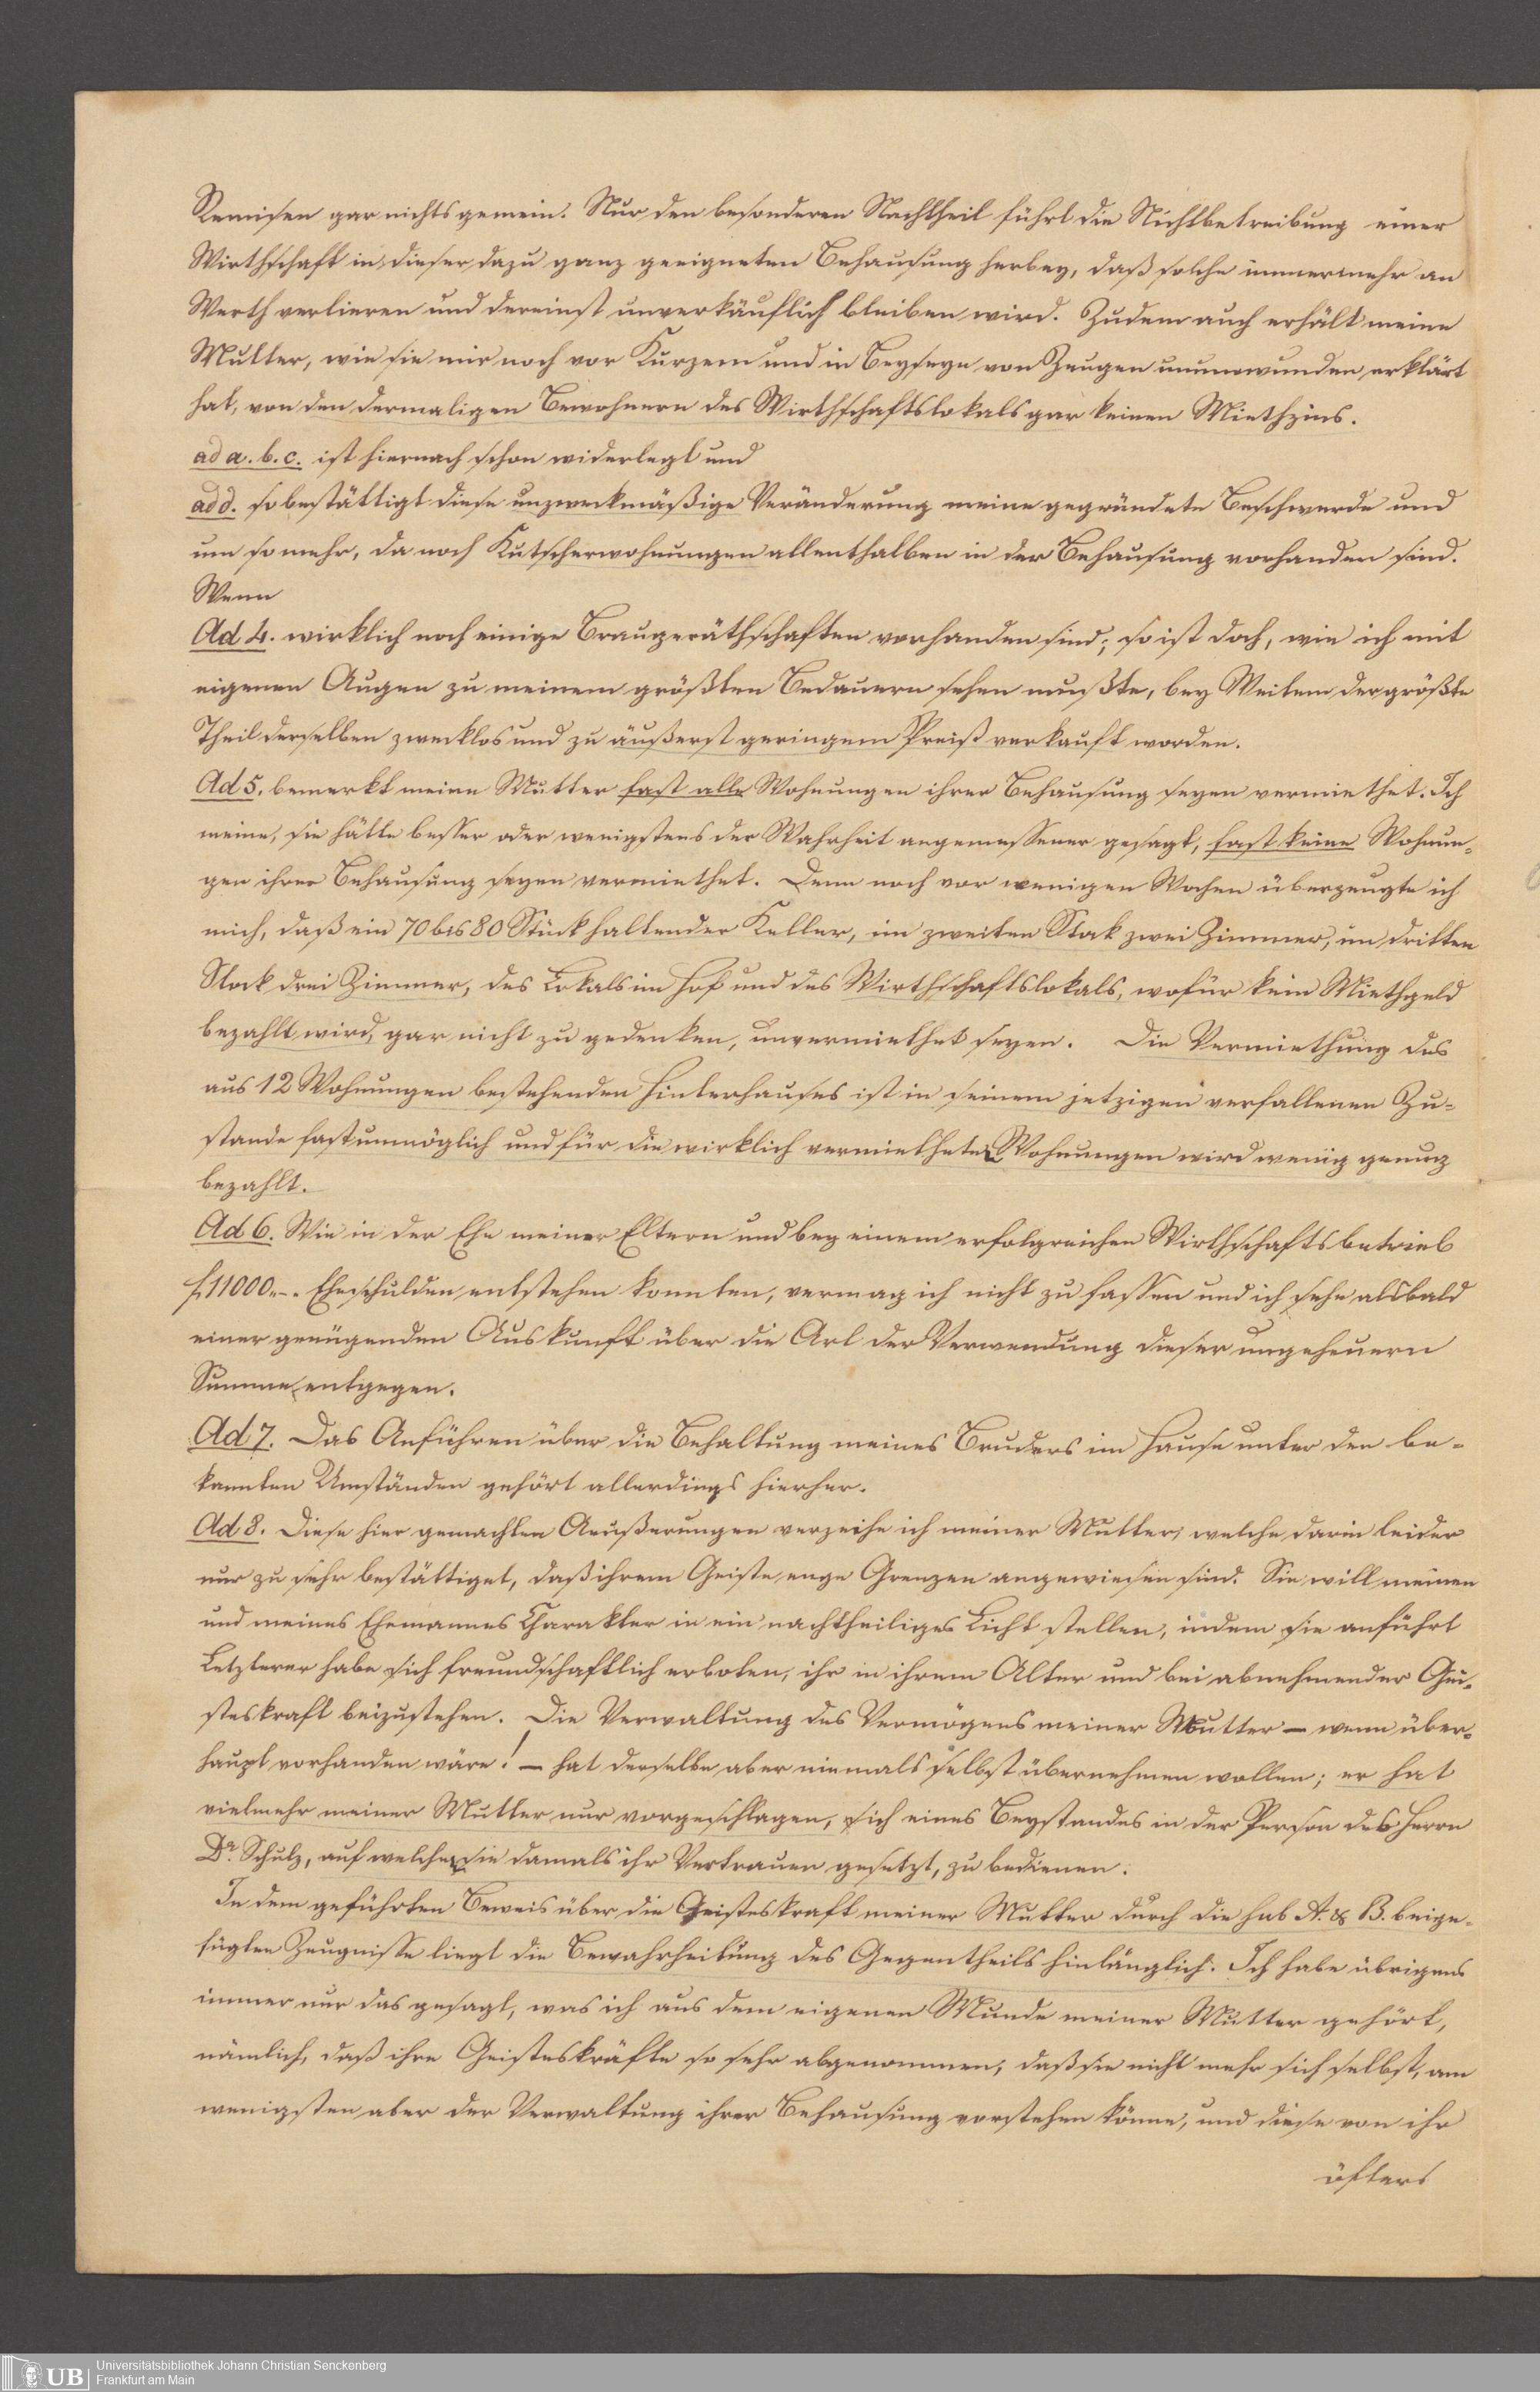 Remisen gar nichts gemein. Nur den besonderen Nachtheil führt die Nichtbetreibung einer
Wirthschaft in dieser dazu ganz geeigneten Behausung herbey, daß solche immermehr an
Werth verlieren und dereinst unverkäuflich bleiben wird. Zudem auch erhält meine
Mutter, wie sie mir noch vor Kurzem und in Beyseyn von Zeugen unumwunden erklärt
hat, von den dermaligen Bewohnern des Wirthschaftslokals gar keinen Miethzins.
ad a. b. c. ist hiernach schon widerlegt und
ad d. so bestättigt diese unzweckmäßige Veränderung meine gegründete Beschwerde und
um so mehr, da noch Kutscherwohnungen allenthalben in der Behausung vorhanden sind.
Wenn
Ad 4. wirklich noch einige Braugeräthschaften vorhanden sind; so ist doch, wie ich mit
eigenen Augen zu meinem größten Bedauern sehen mußte, bey Weitem der größte
Theil derselben zwecklos und zu äußerst geringem Preiß verkauft worden.
Ad 5. bemerkt meine Mutter fast alle Wohnungen ihrer Behausung seyen vermiethet. Ich
meine, sie hätte besser oder wenigstens der Wahrheit angemessener gesagt, fast keine Wohnun-
gen ihrer Behausung seyen vermiethet. Denn noch vor wenigen Wochen überzeugte ich
mich, daß ein 70 bis 80 Stück haltender Keller, im zweiten Stok zwei Zimmer, im dritten
Stock drei Zimmer, des Lokals im Hof und des Wirthschaftslokals, wofür kein Miethgeld
bezahlt wird, gar nicht zu gedenken, unvermiethet seyen. Die Vermiethung des
aus 12 Wohnungen bestehenden Hinterhauses ist in seinem jetzigen verfallenen Zu-
stande fast unmöglich und für die wirklich vermietheten Wohnungen wird wenig genug
bezahlt.
Ad 6. Wie in der Ehe meiner Eltern und bey einem erfolgreichen Wirthschaftsbetrieb
f. 11000.-. Eheschulden entstehen konnten, vermag ich nicht zu fassen und ich sehe alsbald
einer genügenden Auskunft über die Art der Verwendung dieser ungeheuern
Summe entgegen.
Ad 7. Das Anführen über die Behaltung meines Bruders im Hause unter den be-
kannten Umständen gehört allerdings hierher.
Ad 8. Diese hier gemachten Aeußerungen verzeihe ich meiner Mutter, welche darin leider
nur zu sehr bestättiget, daß ihrem Geiste enge Grenzen angewiesen sind. Sie will meinen
und meines Ehemannes Charakter in ein nachtheiliges Licht stellen, indem sie anführt
Letzterer habe sich freundschaftlich erboten, ihr in ihrem Alter und bei abnehmender Gei-
steskraft beizustehen. Die Verwaltung des Vermögens meiner Mutter – wenn über-
haupt vorhanden wäre! – hat derselbe aber niemals selbst übernehmen wollen; er hat
vielmehr meiner Mutter nur vorgeschlagen, sich eines Beystandes in der Person des Herrn
Dr. Schulz, auf welchen sie damals ihr Vertrauen gesetzt, zu bedienen.
In dem geführten Beweis über die Geisteskraft meiner Mutter durch die sub A. & B. beige-
fügten Zeugnisse liegt die Bewahrheitung des Gegentheils hinlänglich. Ich habe übrigens
immer nur das gesagt, was ich aus dem eigenen Munde meiner Mutter gehört,
nämlich, daß ihre Geisteskräfte so sehr abgenommen, daß sie nicht mehr sich selbst, am
wenigsten aber der Verwaltung ihrer Behausung vorstehen könne, und diese von ihr
öfters
UB
Universitätsbibliothek Johann Christian Senckenberg
Frankfurt am Main